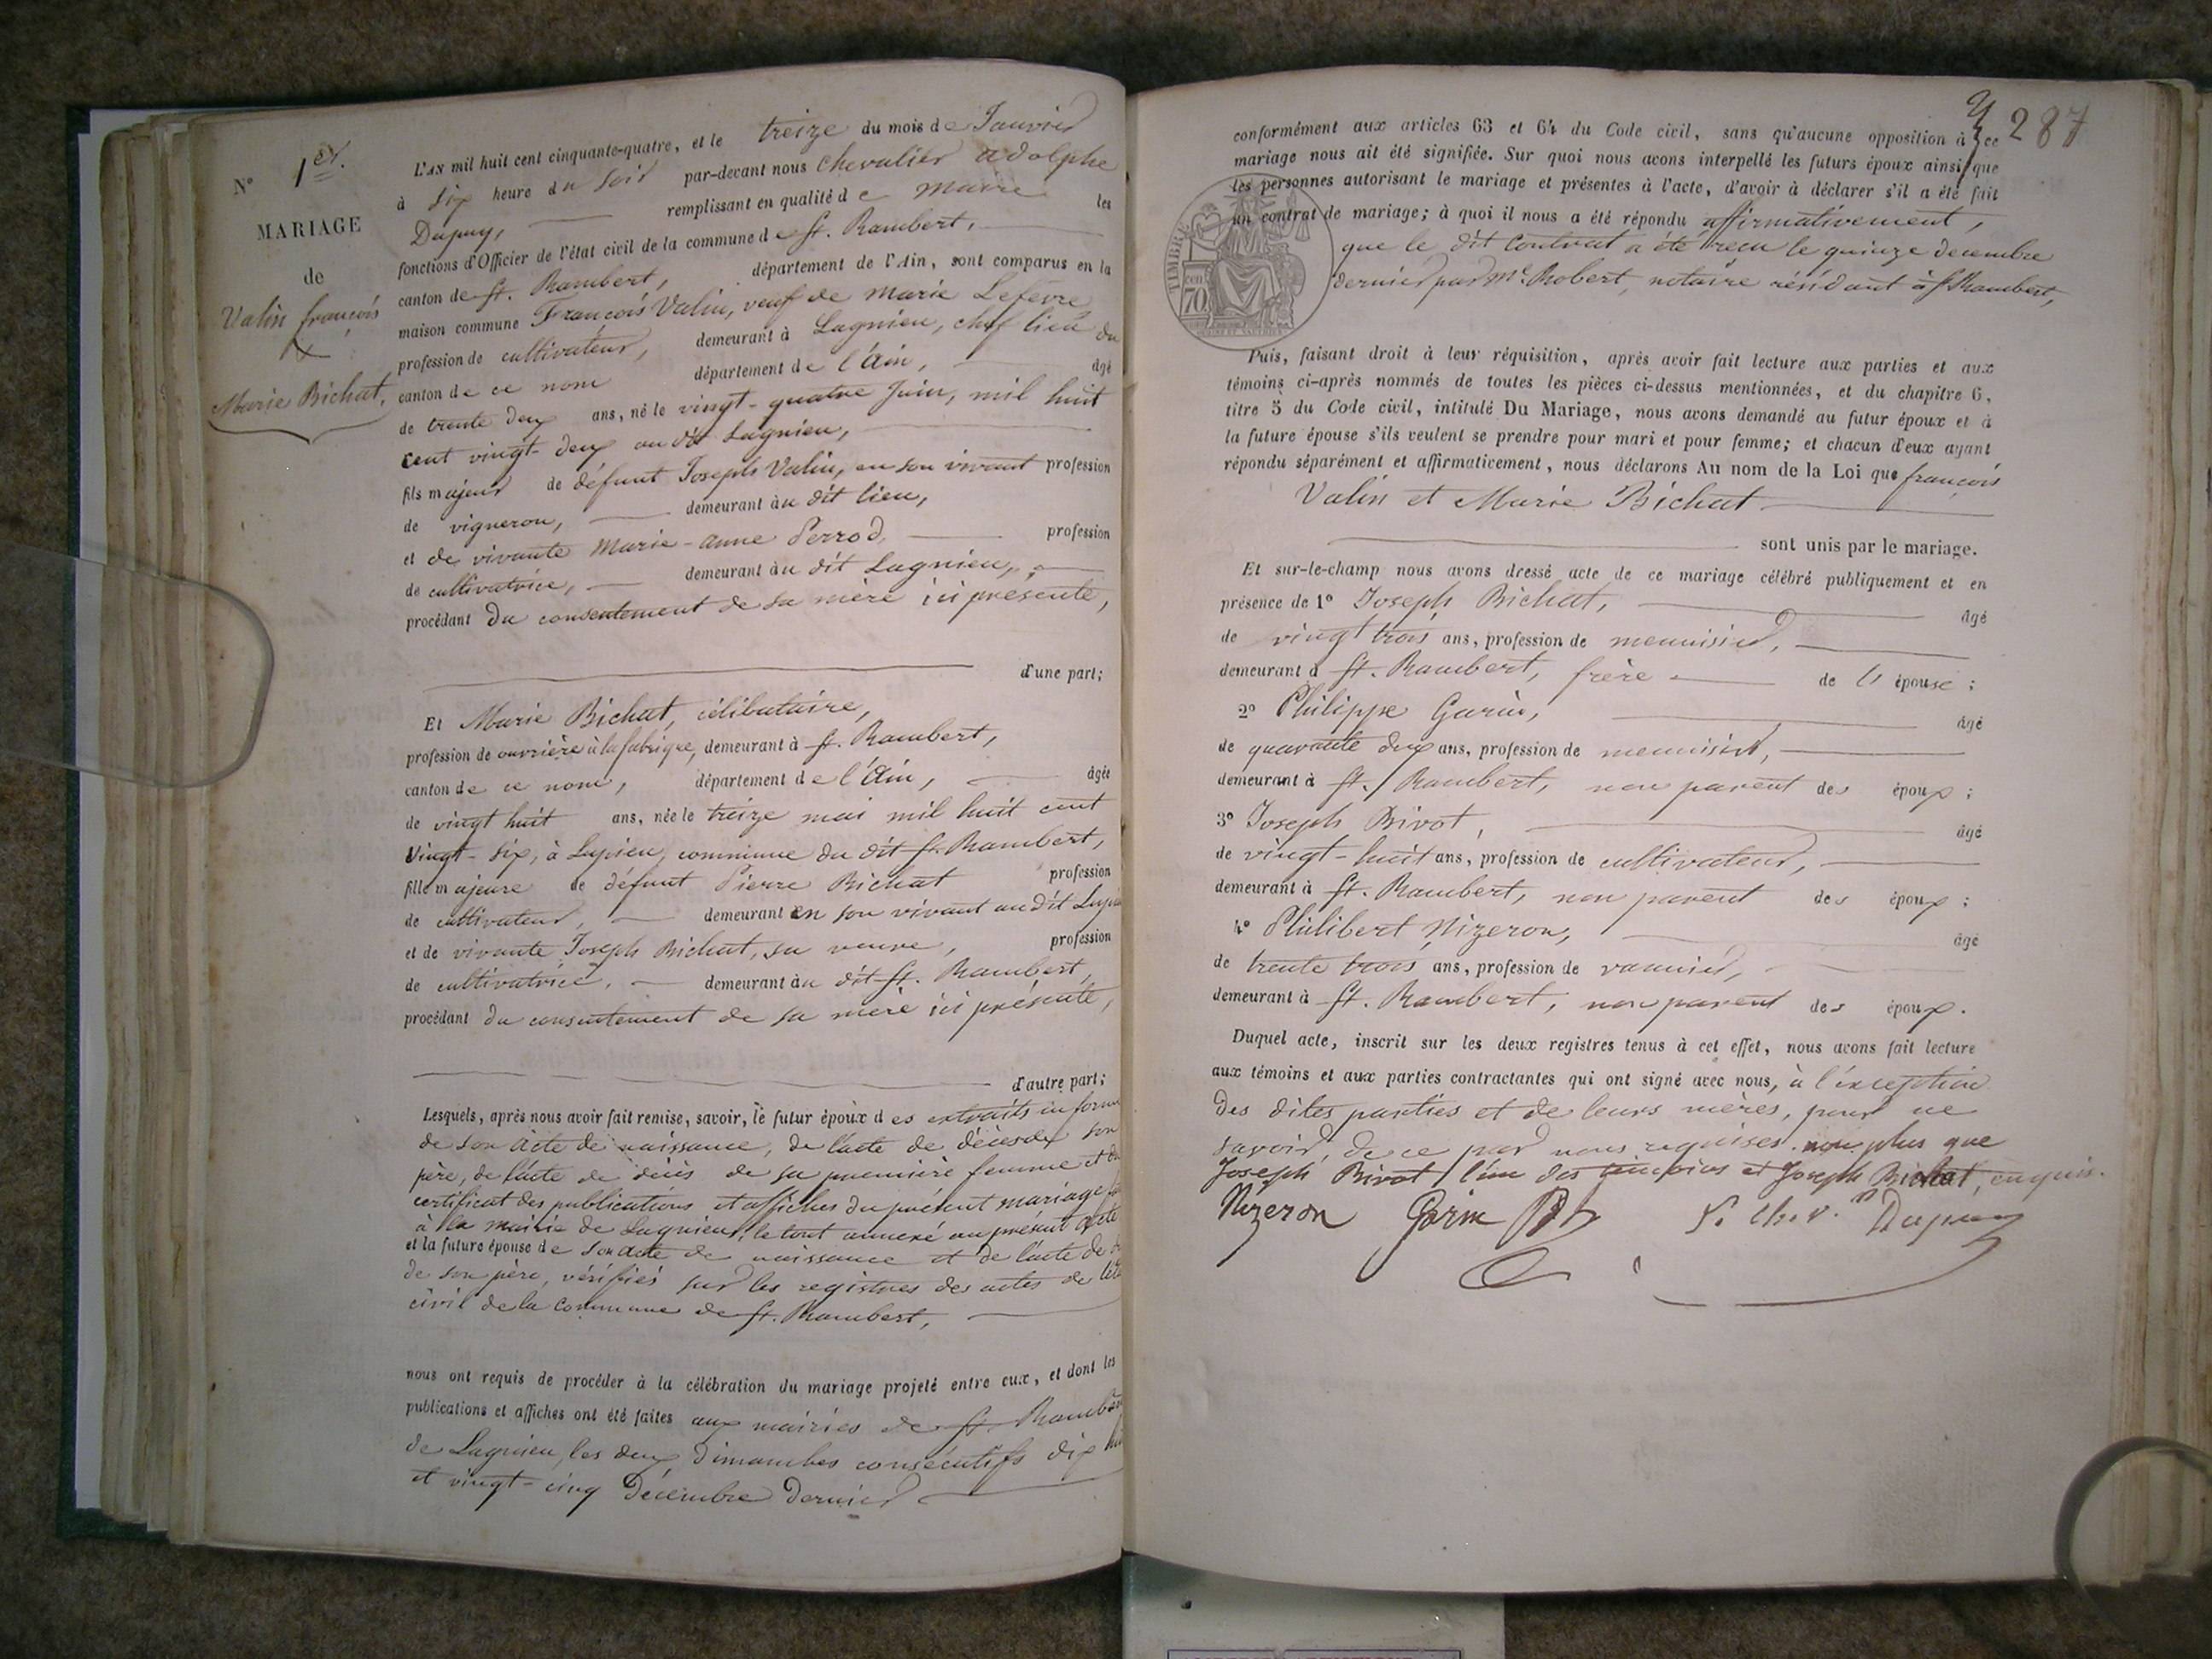 N° 1er.
MARIAGE
de
Valin françois
&
Marie Bichat,
L'AN mil huit cent cinquante-quatre, et le treize du mois de Janvier
à six heure du soir par-devant nous Chevalier adolphe
Dupuy, remplissant en qualité de maire les
fonctions d'Officier de l'état civil de la commune de St. Rambert,
canton de St. Rambert, département de l'Ain, sont comparus en la
maison commune François Valin, veuf de Marie Lefèvre
profession de cultivateur, demeurant à Lagnieu, chef lieu du
canton de ce nom département de l'Ain, âgé
de trente deux ans, né le vingt-quatre Juin, mil huit
cent vingt-deux au dit Lagnieu,
fils majeur de défunt Joseph Valin, en son vivant profession
de vigneron, demeurant au dit lieu,
et de vivante Marie-anne Perrod, profession
de cultivatrice, demeurant au dit Lagnieu,
procédant du consentement de sa mère ici présente,
d'une part;
Et Marie Bichat, célibataire,
profession de ouvrière à la fabrique, demeurant à St. Rambert,
canton de ce nom, département de l'Ain, âgée
de vingt huit ans, née le treize mai mil huit cent
vingt-six, à Lupieu, commune du dit St. Rambert,
fille majeure de défunt Pierre Bichat profession
de cultivateur, demeurant en son vivant au dit Lupieu
et de vivante Joseph Bichat, sa veuve, profession
de cultivatrice, demeurant au dit St. Rambert,
procédant du consentement de sa mère ici présente,
d'autre part;
Lesquels, après nous avoir fait remise, savoir, le futur époux des extraits en forme
de son acte de naissance, de l'acte de décès de son
père, de l'acte de décès de sa première femme et du
certificat des publications et affiches du présent mariage
à la mairie de Lagnieu, le tout annexé au présent acte
et la future épouse de son acte de naissance et de l'acte de
de son père, vérifiés sur les registres des actes de
civil de la commune de St. Rambert,
nous ont requis de procéder à la célébration du mariage projeté entre eux, et dont les
publications et affiches ont été faites aux mairies de St. Rambert
de Lagnieu, les deux dimanches consécutifs dix huit
et vingt-cinq Décembre dernier
287
conformément aux articles 63 et 64 du Code civil, sans qu'aucune opposition à ce
mariage nous ait été signifiée. Sur quoi nous avons interpellé les futurs époux ainsi que
les personnes autorisant le mariage et présentes à l'acte, d'avoir à déclarer s'il a été fait
un contrat de mariage; à quoi il nous a été répondu affirmativement,
que le dit Contrat a été reçu le quinze decembre
dernier par Me. Robert, notaire résidant à St Rambert,
TIMBRE
70
Puis, faisant droit à leur réquisition, après avoir fait lecture aux parties et aux
témoins ci-après nommés de toutes les pièces ci-dessus mentionnées, et du chapitre 6,
titre 5 du Code civil, intitulé Du Mariage, nous avons demandé au futur époux et à
la future épouse s'ils veulent se prendre pour mari et pour femme; et chacun d'eux ayant
répondu séparément et affirmativement, nous déclarons Au nom de la Loi que françois
Valin et Marie Bichat
sont unis par le mariage.
Et sur-le-champ nous avons dressé acte de ce mariage célébré publiquement et en
présence de 1° Joseph Bichat, âgé
de vingt trois ans, profession de menuisier,
demeurant à St. Rambert, frère de l'épouse;
2° Philippe Garin, âgé
de quarante deux ans, profession de menuisier,
demeurant à St. Rambert, non parent des époux;
3° Joseph Bivot, âgé
de vingt-huit ans, profession de cultivateur,
demeurant à St. Rambert, non parent des époux;
4° Philibert Nizeron, âgé
de trente trois ans, profession de vannier,
demeurant à St. Rambert, non parent des époux.
Duquel acte, inscrit sur les deux registres tenus à cet effet, nous avons fait lecture
aux témoins et aux parties contractantes qui ont signé avec nous, à l'exception
des dites parties et de leurs mères, pour ne
savoir, de ce par nous requises. non plus que
Joseph Bivot l'un des témoins et Joseph Bichat, enquis.
Nizeron Garin Dupuy